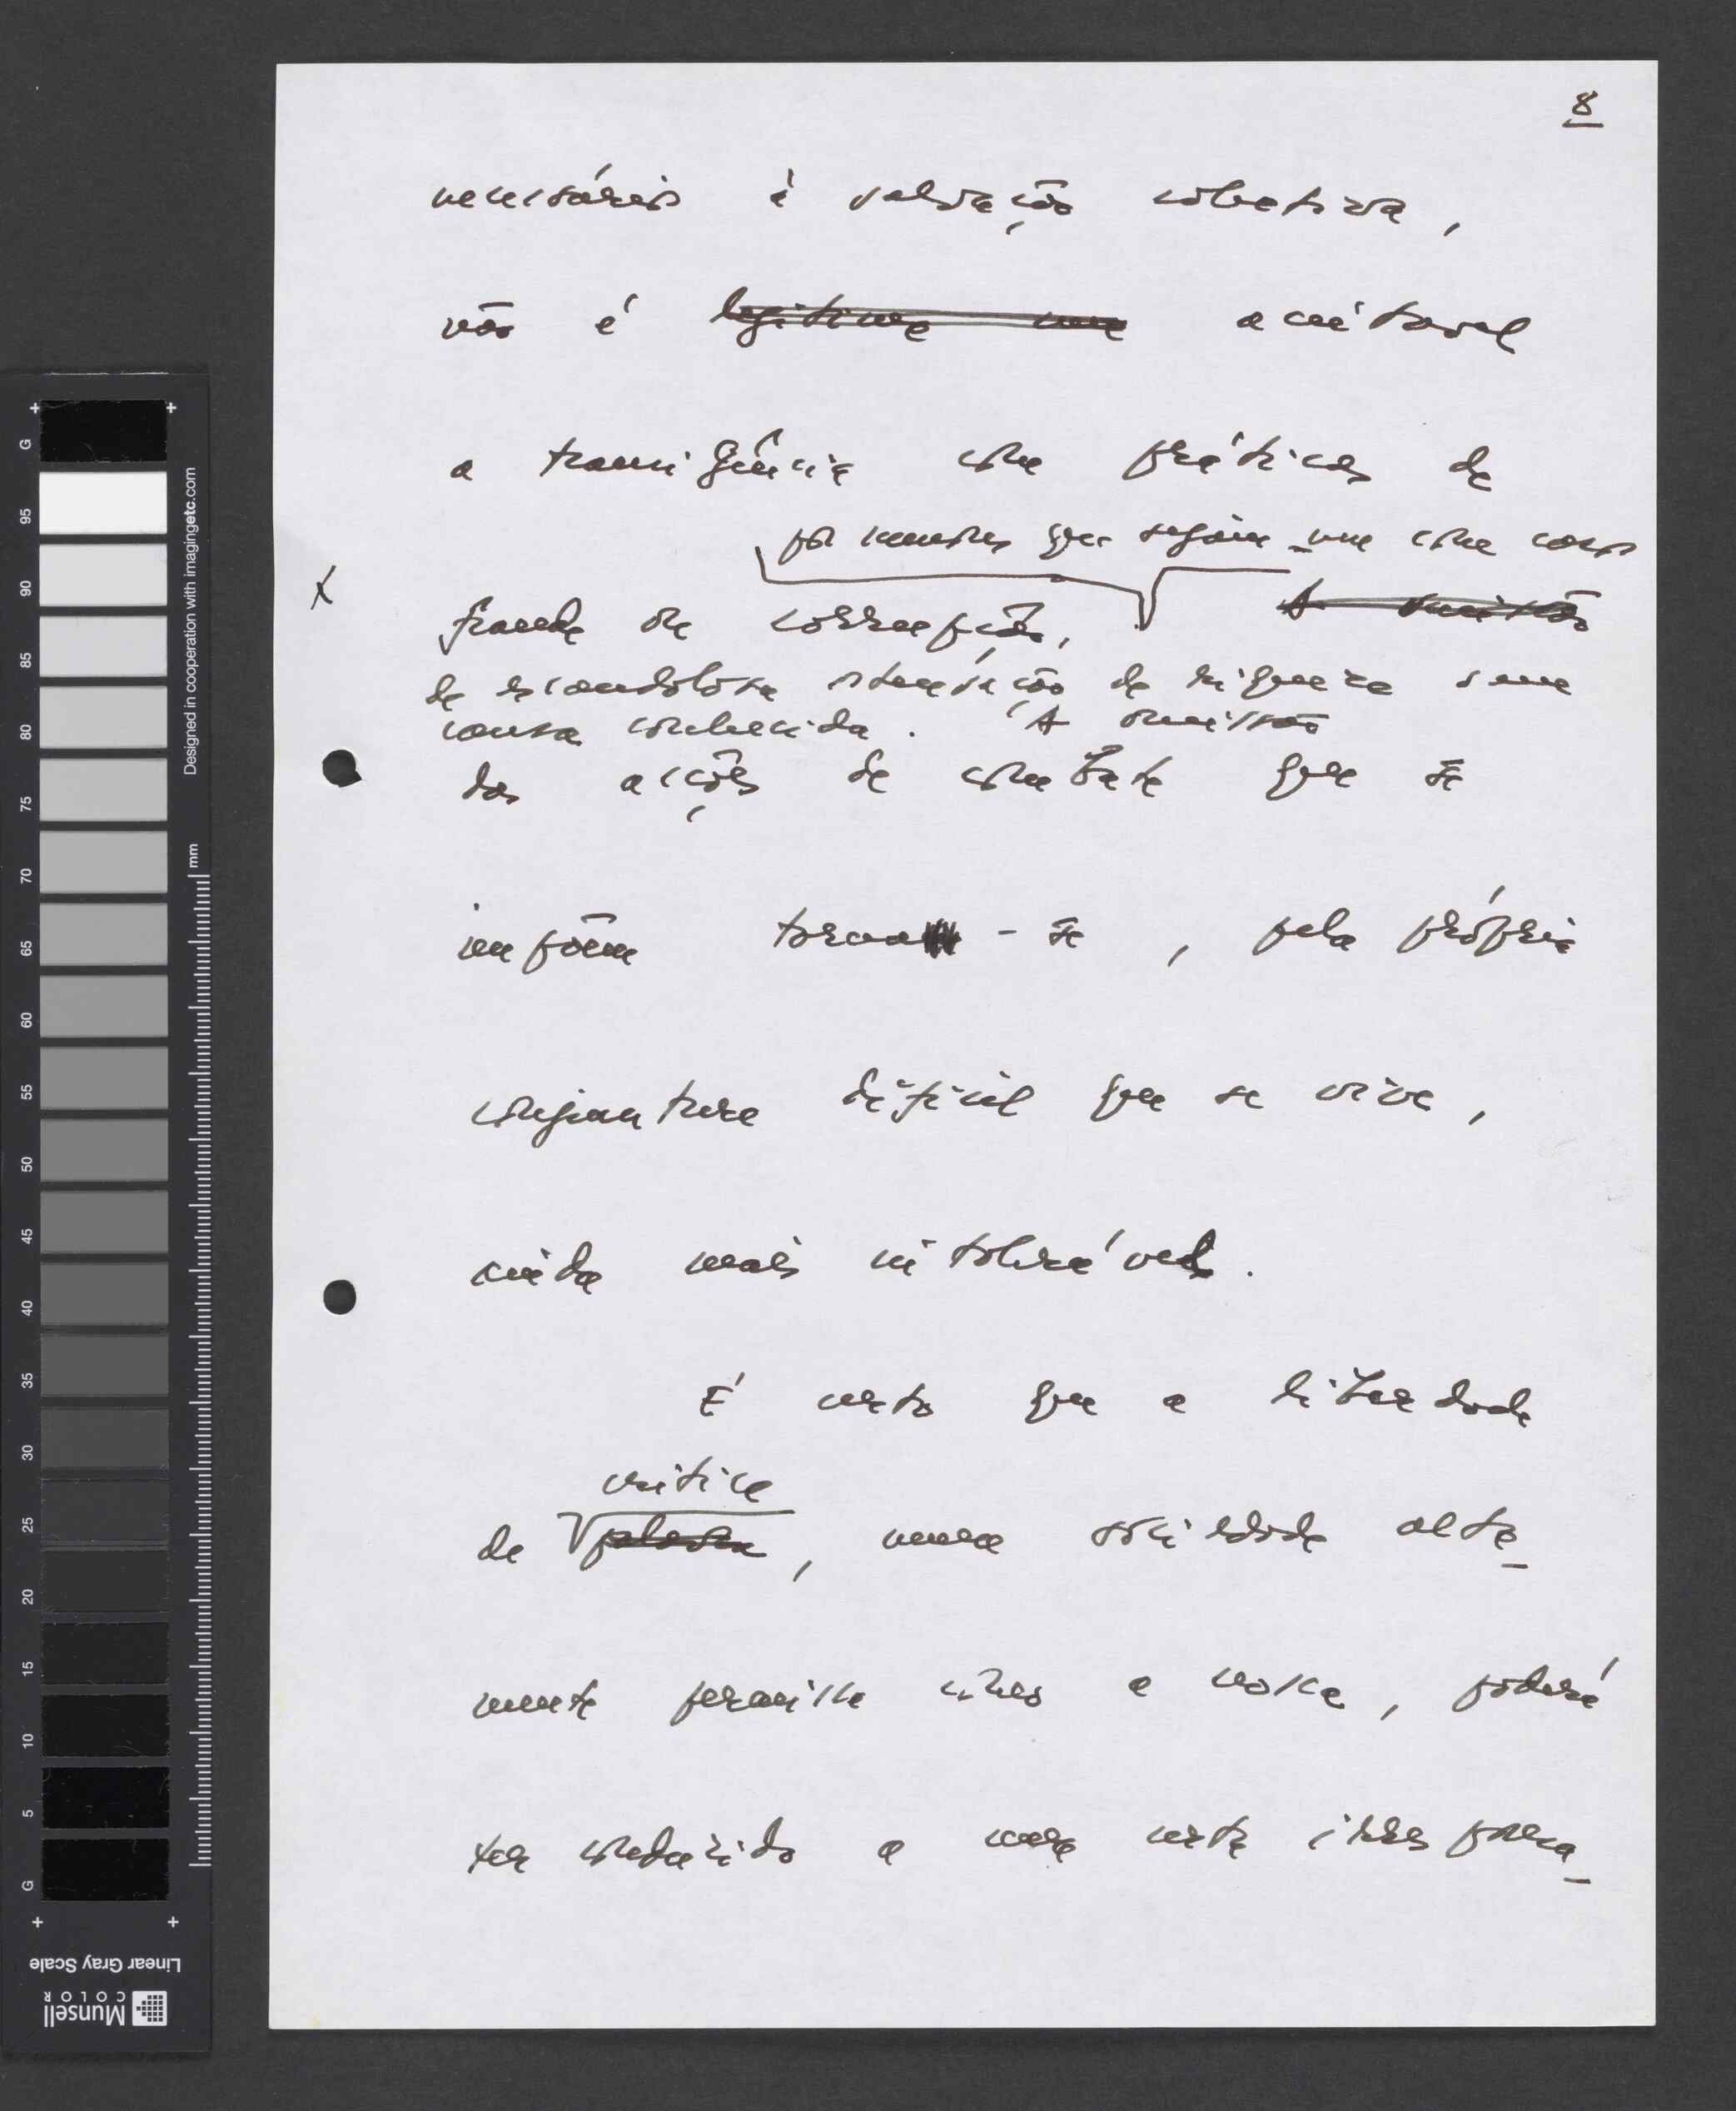 8
necessários à salvação colectiva,
não é legitima uma aceitável
a transigência com práticas de
por muitos que sejam, nem com casos
X
fraude ou corrupção, A omissão
de escandalosa ostentação de riqueza sem
causa conhecida. A omissão
das acções de combate que se
impõem torna-se, pela própria
conjuntura difícil que se vive,
ainda mais intolerável.
É certo que a liberdade
de crítica palavra, numa sociedade alta-
mente permissiva como a nossa, poderá
ter conduzido a uma certa irrespon-
G
95
90
85
80
75
70
65
60
55
50
45
40
35
30
25
20
15
10
5
G
mm
Designed in cooperation with imagingetc.com
Linear Gray Scale
Munsell
COLOR